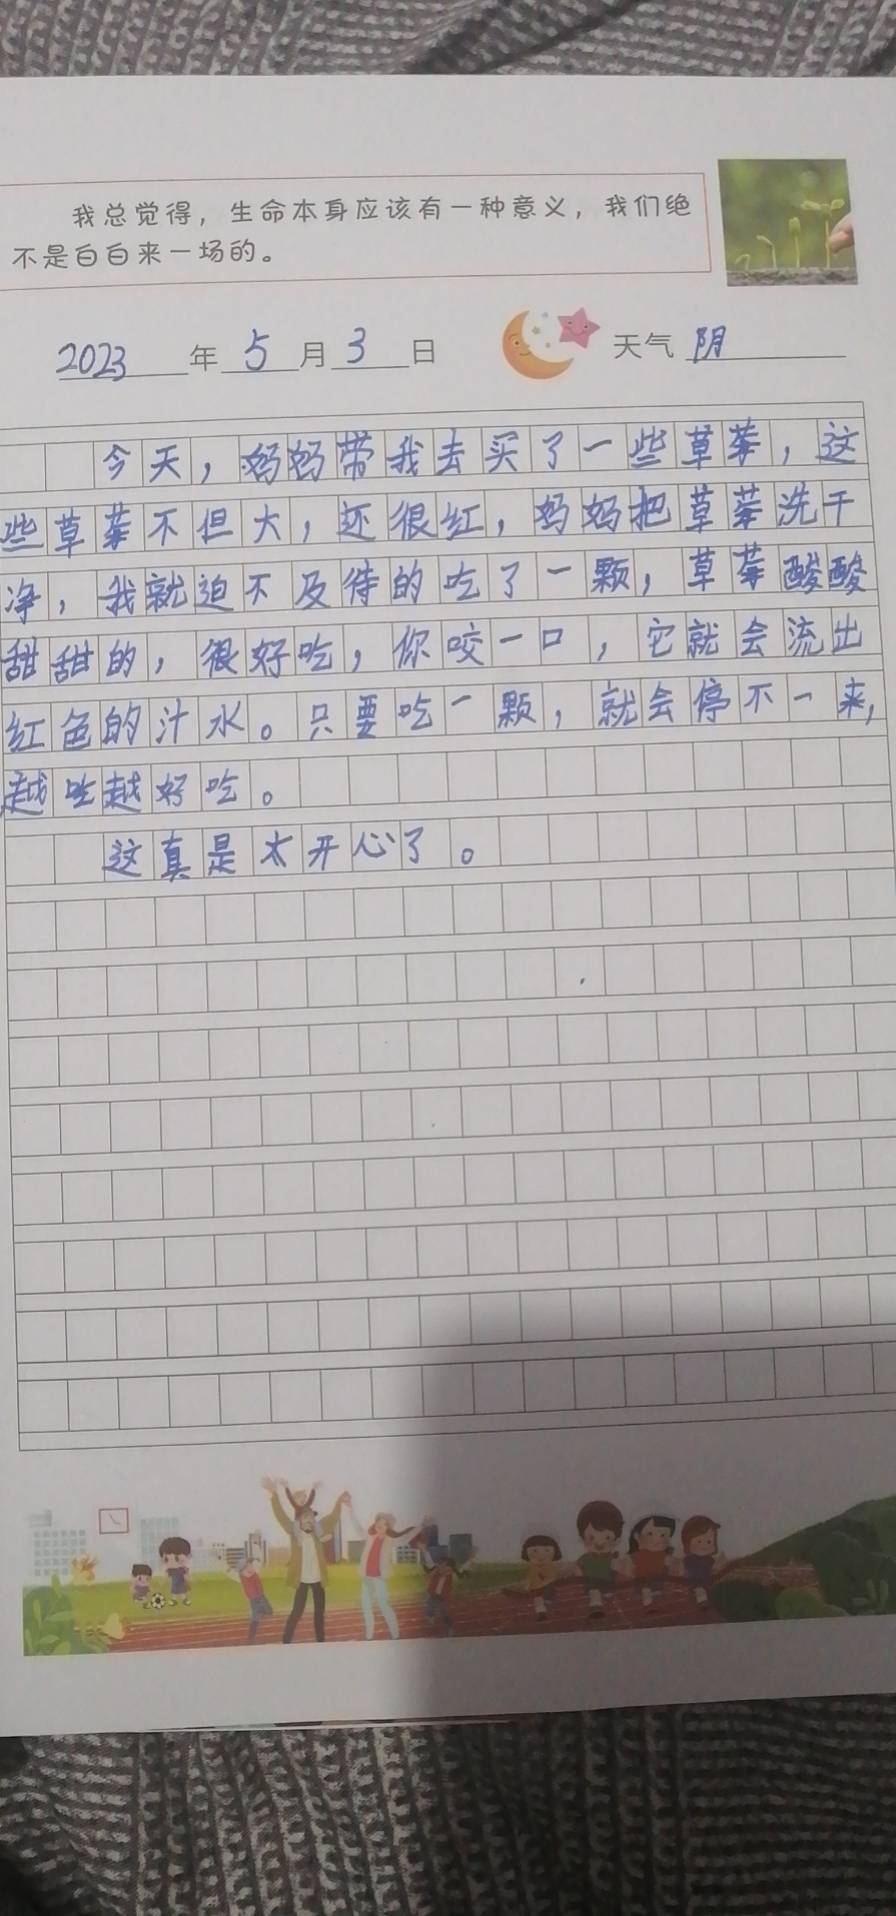 我总觉得，生命本身应该有一种意义，我们绝
不是白白来一场的。
2023年5月3日 天气 阴
今天，妈妈带我去买了一些草莓，这
些草莓不但大，还很红，妈妈把草莓洗干
净，我就迫不及待的吃了一颗，草莓酸酸
甜甜的，很好吃，你咬一口，它就会流出
红色的汁水。只要吃一颗，就会停不一来，
越吃越好吃。
这真是太开心了。